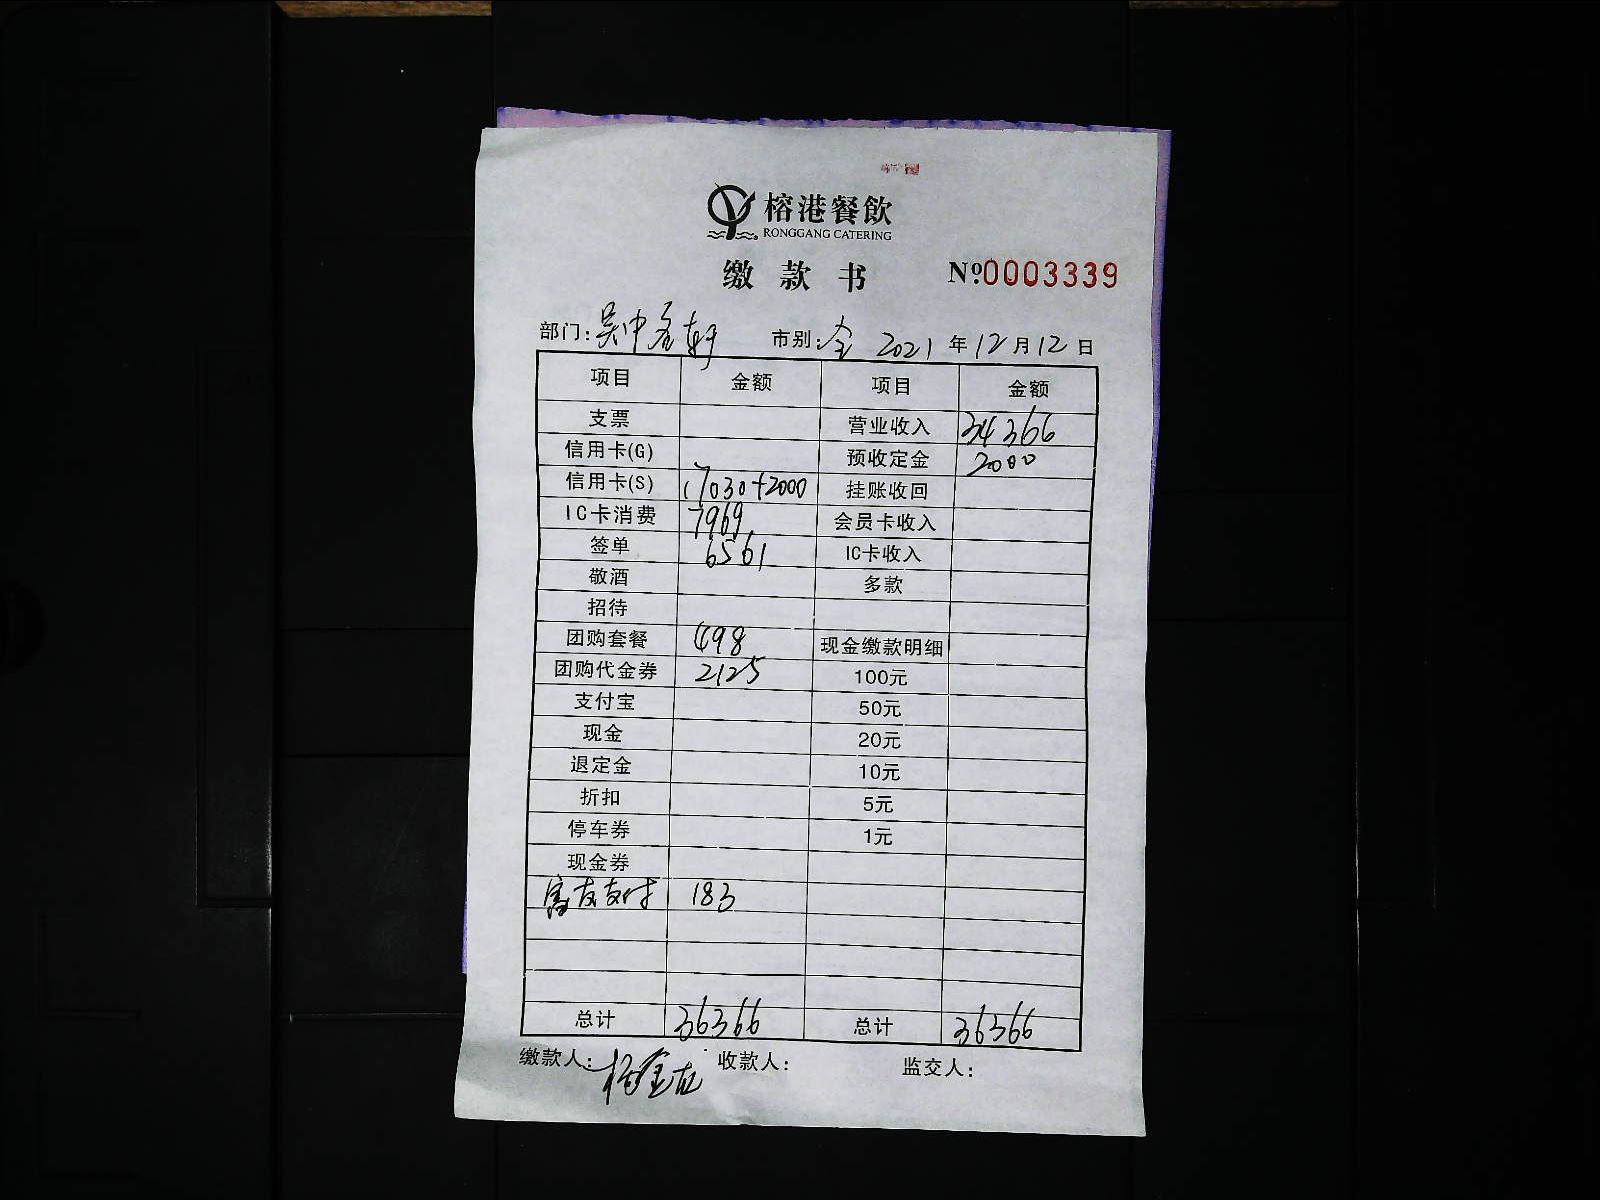 榕港餐飲
RONGGANG CATERING
缴款书 №0003339
部门:吴中 市别:全 2021年12月12日
项目 金额 项目 金额
支票 营业收入 34366
信用卡(G) 预收定金 2000
信用卡(S) 17030+2000 挂账收回
IC卡消费 7969 会员卡收入
签单 6561 IC卡收入
敬酒 多款
招待
团购套餐 498 现金缴款明细
团购代金券 2125 100元
支付宝 50元
现金 20元
退定金 10元
折扣 5元
停车券 1元
现金券
富友支付 183
总计 36366 总计 36366
缴款人: 收款人: 监交人: